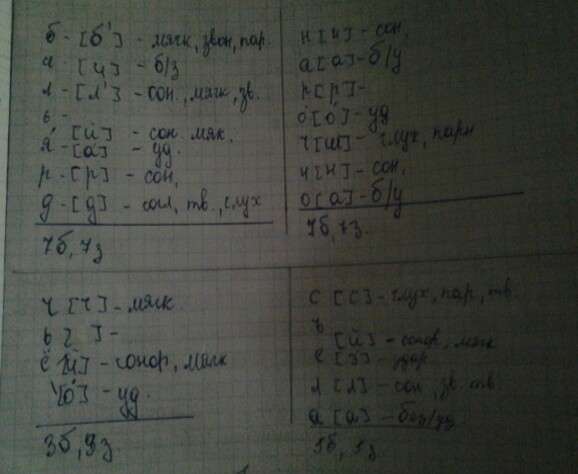 б - [б'] - мягк, звон, пар.
и [и] - б/з
л - [л'] - сон., мягк, зв.
ь -
я - [й] - сон. мяк.
[а] - уд.
р - [р] - сон,
д - [д] - согл, тв., глух
7б, 7з
н [н] - сон.
а [а] - б/у
р [р] -
о [о] - уд
ч [ш] - глух, парн
н [н] - сон.
о [а] - б/у
7б, 7з
ч [ч] - мягк.
ь [ ] -
ё [й] - сонор, мягк
[о] - уд.
3б, 3з
с [с] - глух, пар, тв.
ъ
[й] - сонор, мягк
е [э] - удар
л [л] - сон, зв. тв.
а [а] - без/уд
5б, 5з